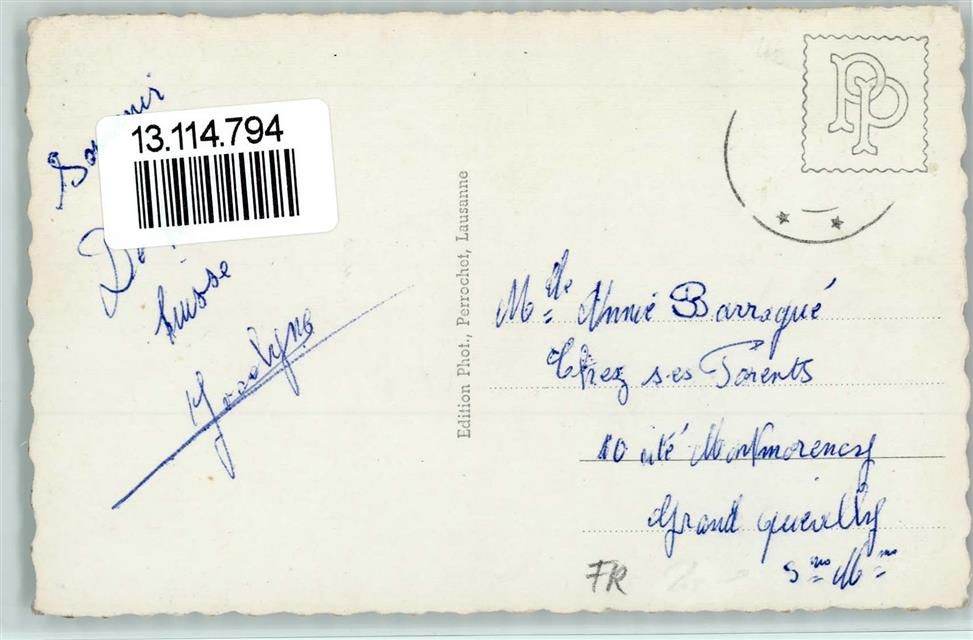 13.114.794
Suisse
Jocelyne
Edition Phot., Perrochet, Lausanne
PP
Mlle Annie Barragué
Chez ses Parents
10 cité Montmorency
Grand Quevilly
Sne Mme
FR